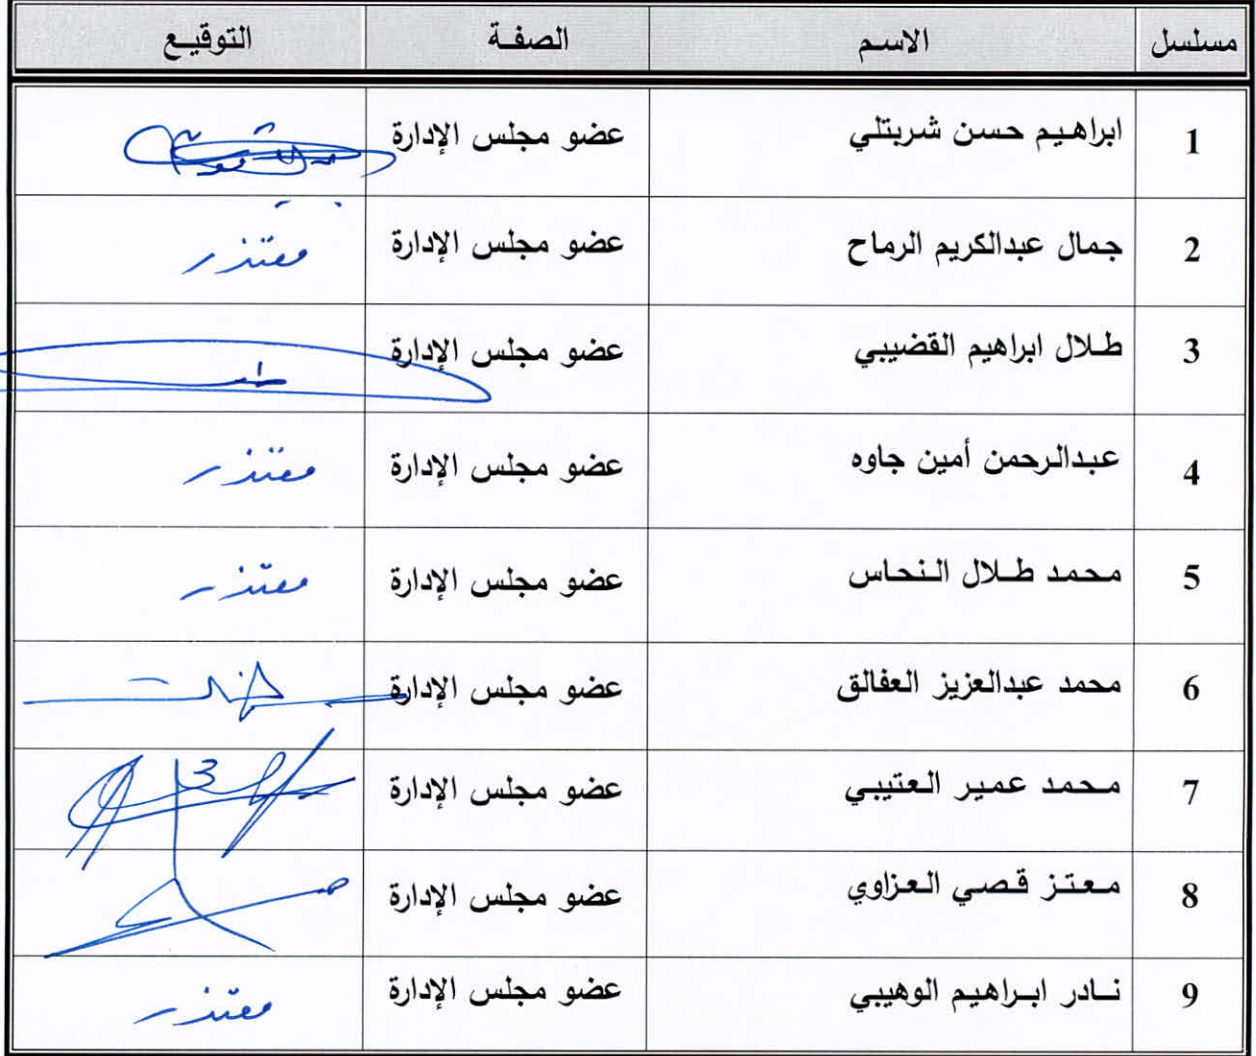 مسلسل الاسم الصفة التوقيع
1 ابراهيم حسن شربتلي عضو مجلس الإدارة
2 جمال عبدالكريم الرماح عضو مجلس الإدارة معتذر
3 طلال ابراهيم القضيبي عضو مجلس الإدارة
4 عبدالرحمن أمين جاوه عضو مجلس الإدارة معتذر
5 محمد طلال النحاس عضو مجلس الإدارة معتذر
6 محمد عبدالعزيز العفالق عضو مجلس الإدارة
7 محمد عمير العتيبي عضو مجلس الإدارة
8 معتز قصي العزاوي عضو مجلس الإدارة
9 نادر ابراهيم الوهيبي عضو مجلس الإدارة معتذر